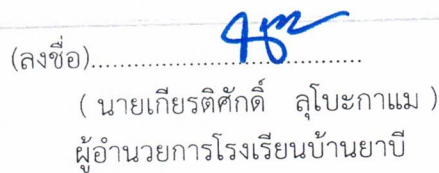 (ลงชื่อ)..............................................
( นายเกียรติศักดิ์ ลุโบะกาแม )
ผู้อำนวยการโรงเรียนบ้านยาบี